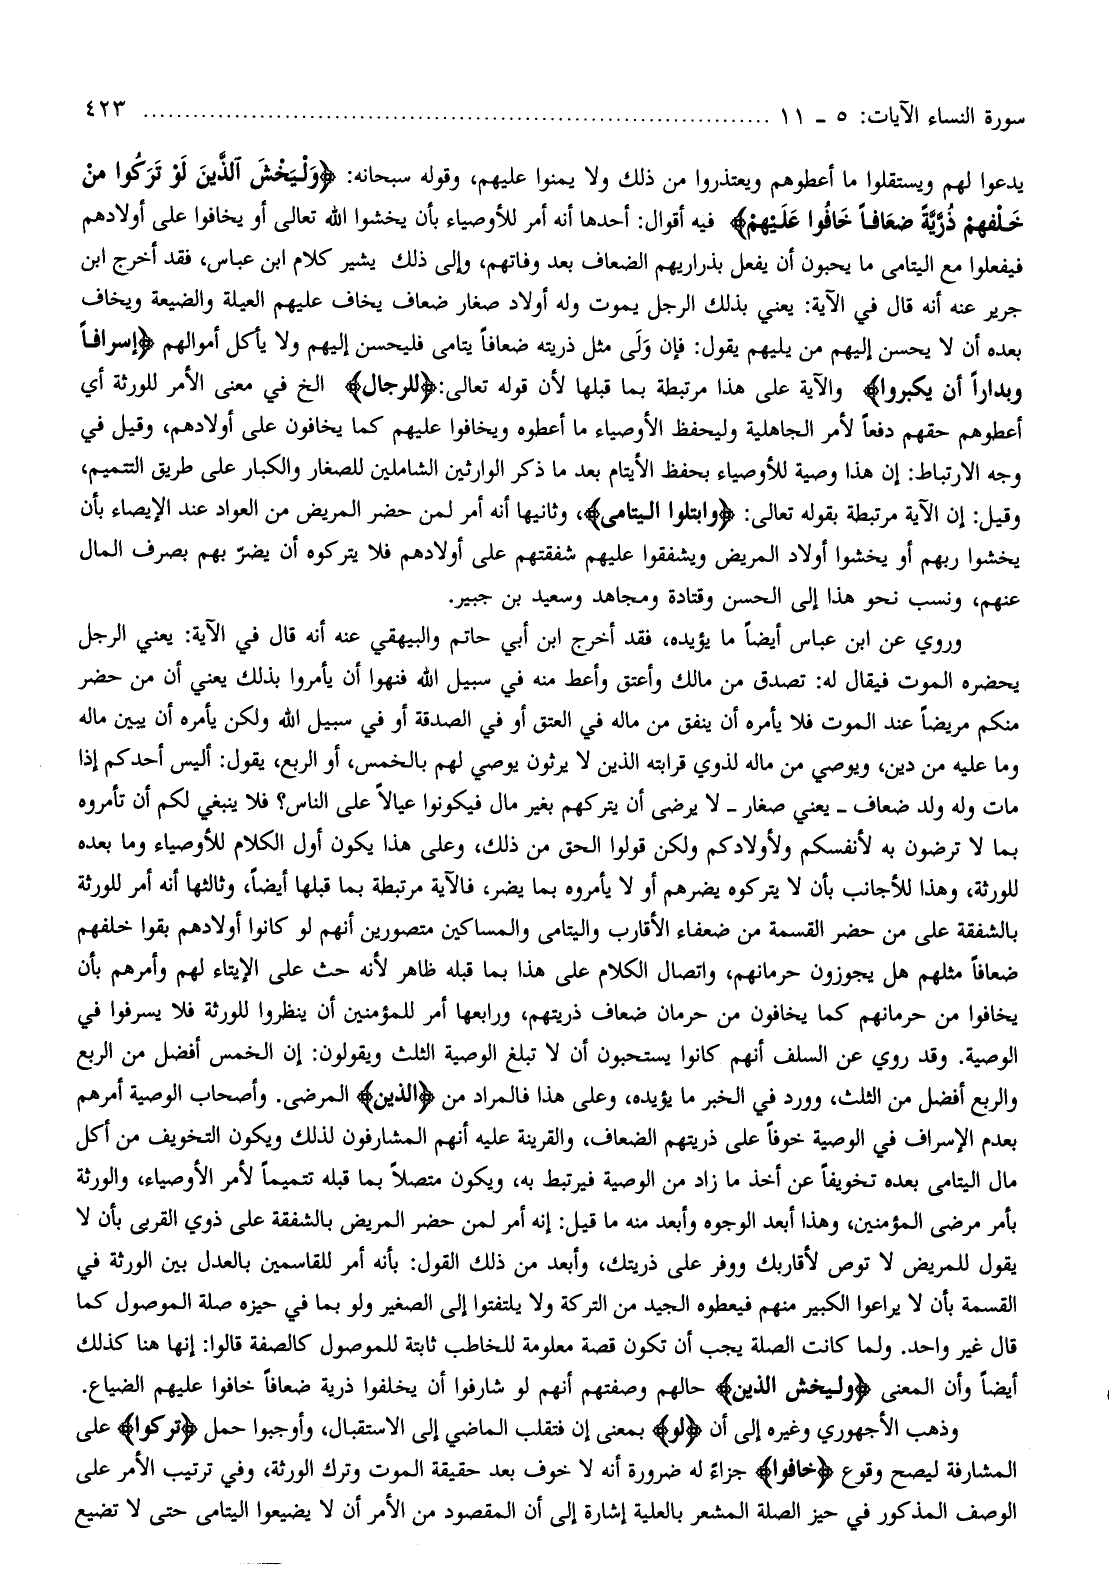 سورة النساء الآيات: ٥ ـ ١١ ........................................................................... ٤٢٣
يدعوا لهم ويستقلوا ما أعطوهم ويعتذروا من ذلك ولا يمنوا عليهم، وقوله سبحانه: ﴿وَلْيَخْشَ ٱلَّذِينَ لَوْ تَرَكُوا مِنْ
خَلْفِهِمْ ذُرِّيَّةً ضِعَافاً خَافُوا عَلَيْهِمْ﴾ فيه أقوال: أحدها أنه أمر للأوصياء بأن يخشوا الله تعالى أو يخافوا على أولادهم
فيفعلوا مع اليتامى ما يحبون أن يفعل بذراريهم الضعاف بعد وفاتهم، وإلى ذلك يشير كلام ابن عباس، فقد أخرج ابن
جرير عنه أنه قال في الآية: يعني بذلك الرجل يموت وله أولاد صغار ضعاف يخاف عليهم العيلة والضيعة ويخاف
بعده أن لا يحسن إليهم من يليهم يقول: فإن وَلَى مثل ذريته ضعافاً يتامى فليحسن إليهم ولا يأكل أموالهم ﴿إسرافاً
وبداراً أن يكبروا﴾ والآية على هذا مرتبطة بما قبلها لأن قوله تعالى: ﴿للرجال﴾ الخ في معنى الأمر للورثة أي
أعطوهم حقهم دفعاً لأمر الجاهلية وليحفظ الأوصياء ما أعطوه ويخافوا عليهم كما يخافون على أولادهم، وقيل في
وجه الارتباط: إن هذا وصية للأوصياء بحفظ الأيتام بعد ما ذكر الوارثين الشاملين للصغار والكبار على طريق التتميم،
وقيل: إن الآية مرتبطة بقوله تعالى: ﴿وابتلوا اليتامى﴾، وثانيها أنه أمر لمن حضر المريض من العواد عند الإيصاء بأن
يخشوا ربهم أو يخشوا أولاد المريض ويشفقوا عليهم شفقتهم على أولادهم فلا يتركوه أن يضرّ بهم بصرف المال
عنهم، ونسب نحو هذا إلى الحسن وقتادة ومجاهد وسعيد بن جبير.
وروي عن ابن عباس أيضاً ما يؤيده، فقد أخرج ابن أبي حاتم والبيهقي عنه أنه قال في الآية: يعني الرجل
يحضره الموت فيقال له: تصدق من مالك وأعتق وأعط منه في سبيل الله فنهوا أن يأمروا بذلك يعني أن من حضر
منكم مريضاً عند الموت فلا يأمره أن ينفق من ماله في العتق أو في الصدقة أو في سبيل الله ولكن يأمره أن يبين ماله
وما عليه من دين، ويوصي من ماله لذوي قرابته الذين لا يرثون يوصي لهم بالخمس، أو الربع، يقول: أليس أحدكم إذا
مات وله ولد ضعاف ـ يعني صغار ـ لا يرضى أن يتركهم بغير مال فيكونوا عيالاً على الناس؟ فلا ينبغي لكم أن تأمروه
بما لا ترضون به لأنفسكم ولأولادكم ولكن قولوا الحق من ذلك، وعلى هذا يكون أول الكلام للأوصياء وما بعده
للورثة، وهذا للأجانب بأن لا يتركوه يضرهم أو لا يأمروه بما يضر، فالآية مرتبطة بما قبلها أيضاً، وثالثها أنه أمر للورثة
بالشفقة على من حضر القسمة من ضعفاء الأقارب واليتامى والمساكين متصورين أنهم لو كانوا أولادهم بقوا خلفهم
ضعافاً مثلهم هل يجوزون حرمانهم، واتصال الكلام على هذا بما قبله ظاهر لأنه حث على الإيتاء لهم وأمرهم بأن
يخافوا من حرمانهم كما يخافون من حرمان ضعاف ذريتهم، ورابعها أمر للمؤمنين أن ينظروا للورثة فلا يسرفوا في
الوصية. وقد روي عن السلف أنهم كانوا يستحبون أن لا تبلغ الوصية الثلث ويقولون: إن الخمس أفضل من الربع
والربع أفضل من الثلث، وورد في الخبر ما يؤيده، وعلى هذا فالمراد من ﴿الذين﴾ المرضى. وأصحاب الوصية أمرهم
بعدم الإسراف في الوصية خوفاً على ذريتهم الضعاف، والقرينة عليه أنهم المشارفون لذلك ويكون التخويف من أكل
مال اليتامى بعده تخويفاً عن أخذ ما زاد من الوصية فيرتبط به، ويكون متصلاً بما قبله تتميماً لأمر الأوصياء، والورثة
بأمر مرضى المؤمنين، وهذا أبعد الوجوه وأبعد منه ما قيل: إنه أمر لمن حضر المريض بالشفقة على ذوي القربى بأن لا
يقول للمريض لا توص لأقاربك ووفر على ذريتك، وأبعد من ذلك القول: بأنه أمر للقاسمين بالعدل بين الورثة في
القسمة بأن لا يراعوا الكبير منهم فيعطوه الجيد من التركة ولا يلتفتوا إلى الصغير ولو بما في حيزه صلة الموصول كما
قال غير واحد. ولما كانت الصلة يجب أن تكون قصة معلومة للخاطب ثابتة للموصول كالصفة قالوا: إنها هنا كذلك
أيضاً وأن المعنى ﴿وليخش الذين﴾ حالهم وصفتهم أنهم لو شارفوا أن يخلفوا ذرية ضعافاً خافوا عليهم الضياع.
وذهب الأجهوري وغيره إلى أن ﴿لو﴾ بمعنى إن فتقلب الماضي إلى الاستقبال، وأوجبوا حمل ﴿تركوا﴾ على
المشارفة ليصح وقوع ﴿خافوا﴾ جزاءً له ضرورة أنه لا خوف بعد حقيقة الموت وترك الورثة، وفي ترتيب الأمر على
الوصف المذكور في حيز الصلة المشعر بالعلية إشارة إلى أن المقصود من الأمر أن لا يضيعوا اليتامى حتى لا تضيع